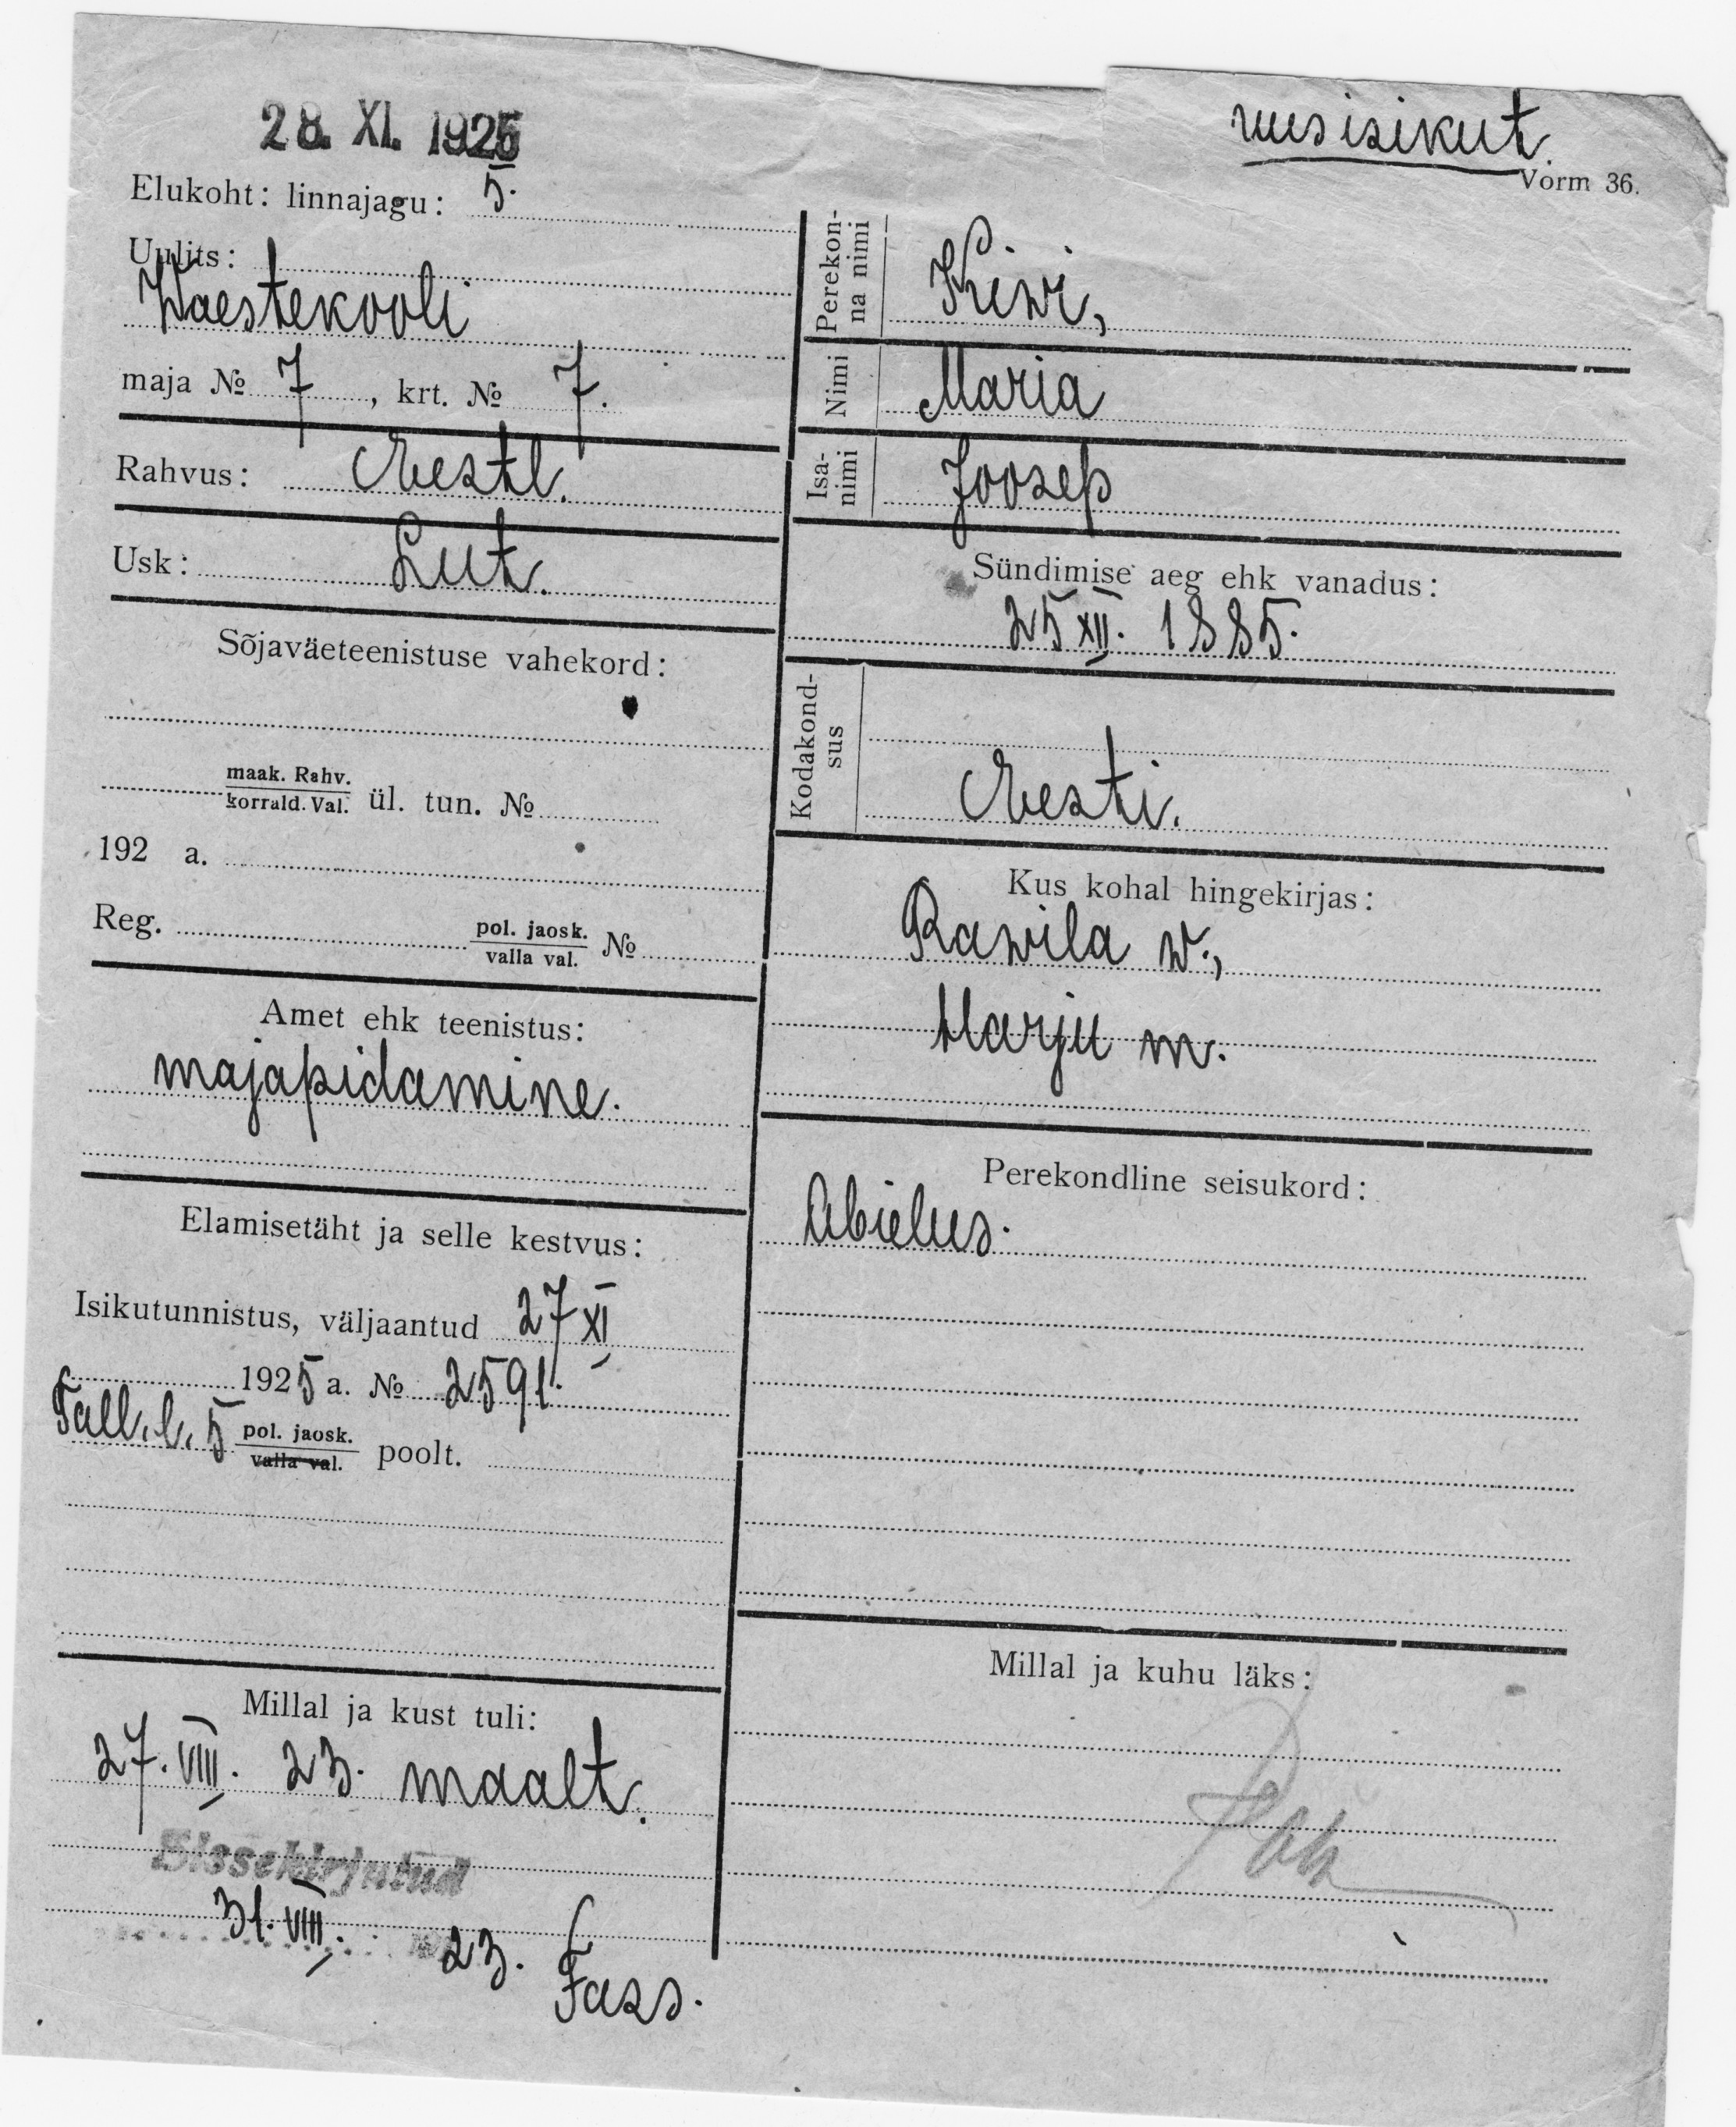 28. XI. 1925
uus isikut.
Vorm 36.
Elukoht: linnajagu: 5.
Uulits:
Waestekooli
maja № 7, krt. № 7.
Rahvus: Eestl.
Usk: Lut.
Sõjaväeteenistuse vahekord:
maak. Rahv.
korrald. Val. ül. tun. №
192 a.
Reg. pol. jaosk.
valla val. №
Amet ehk teenistus:
majapidamine.
Elamisetäht ja selle kestvus:
Isikutunnistus, väljaantud 27 XI
1925 a. № 2591.
Tall. l. 5 pol. jaosk.
valla val. poolt.
Millal ja kust tuli:
27. VIII. 23. maalt.
Sissekirjutud
31. VIII. 23. Tass.
Perekon-
na nimi
Kiwi,
Nimi
Maria
Isa-
nimi
Joosep
Sündimise aeg ehk vanadus:
25 XII. 1885.
Kodakond-
sus
Eesti.
Kus kohal hingekirjas:
Rawila w.,
Harju m.
Perekondline seisukord:
Abielus.
Millal ja kuhu läks: